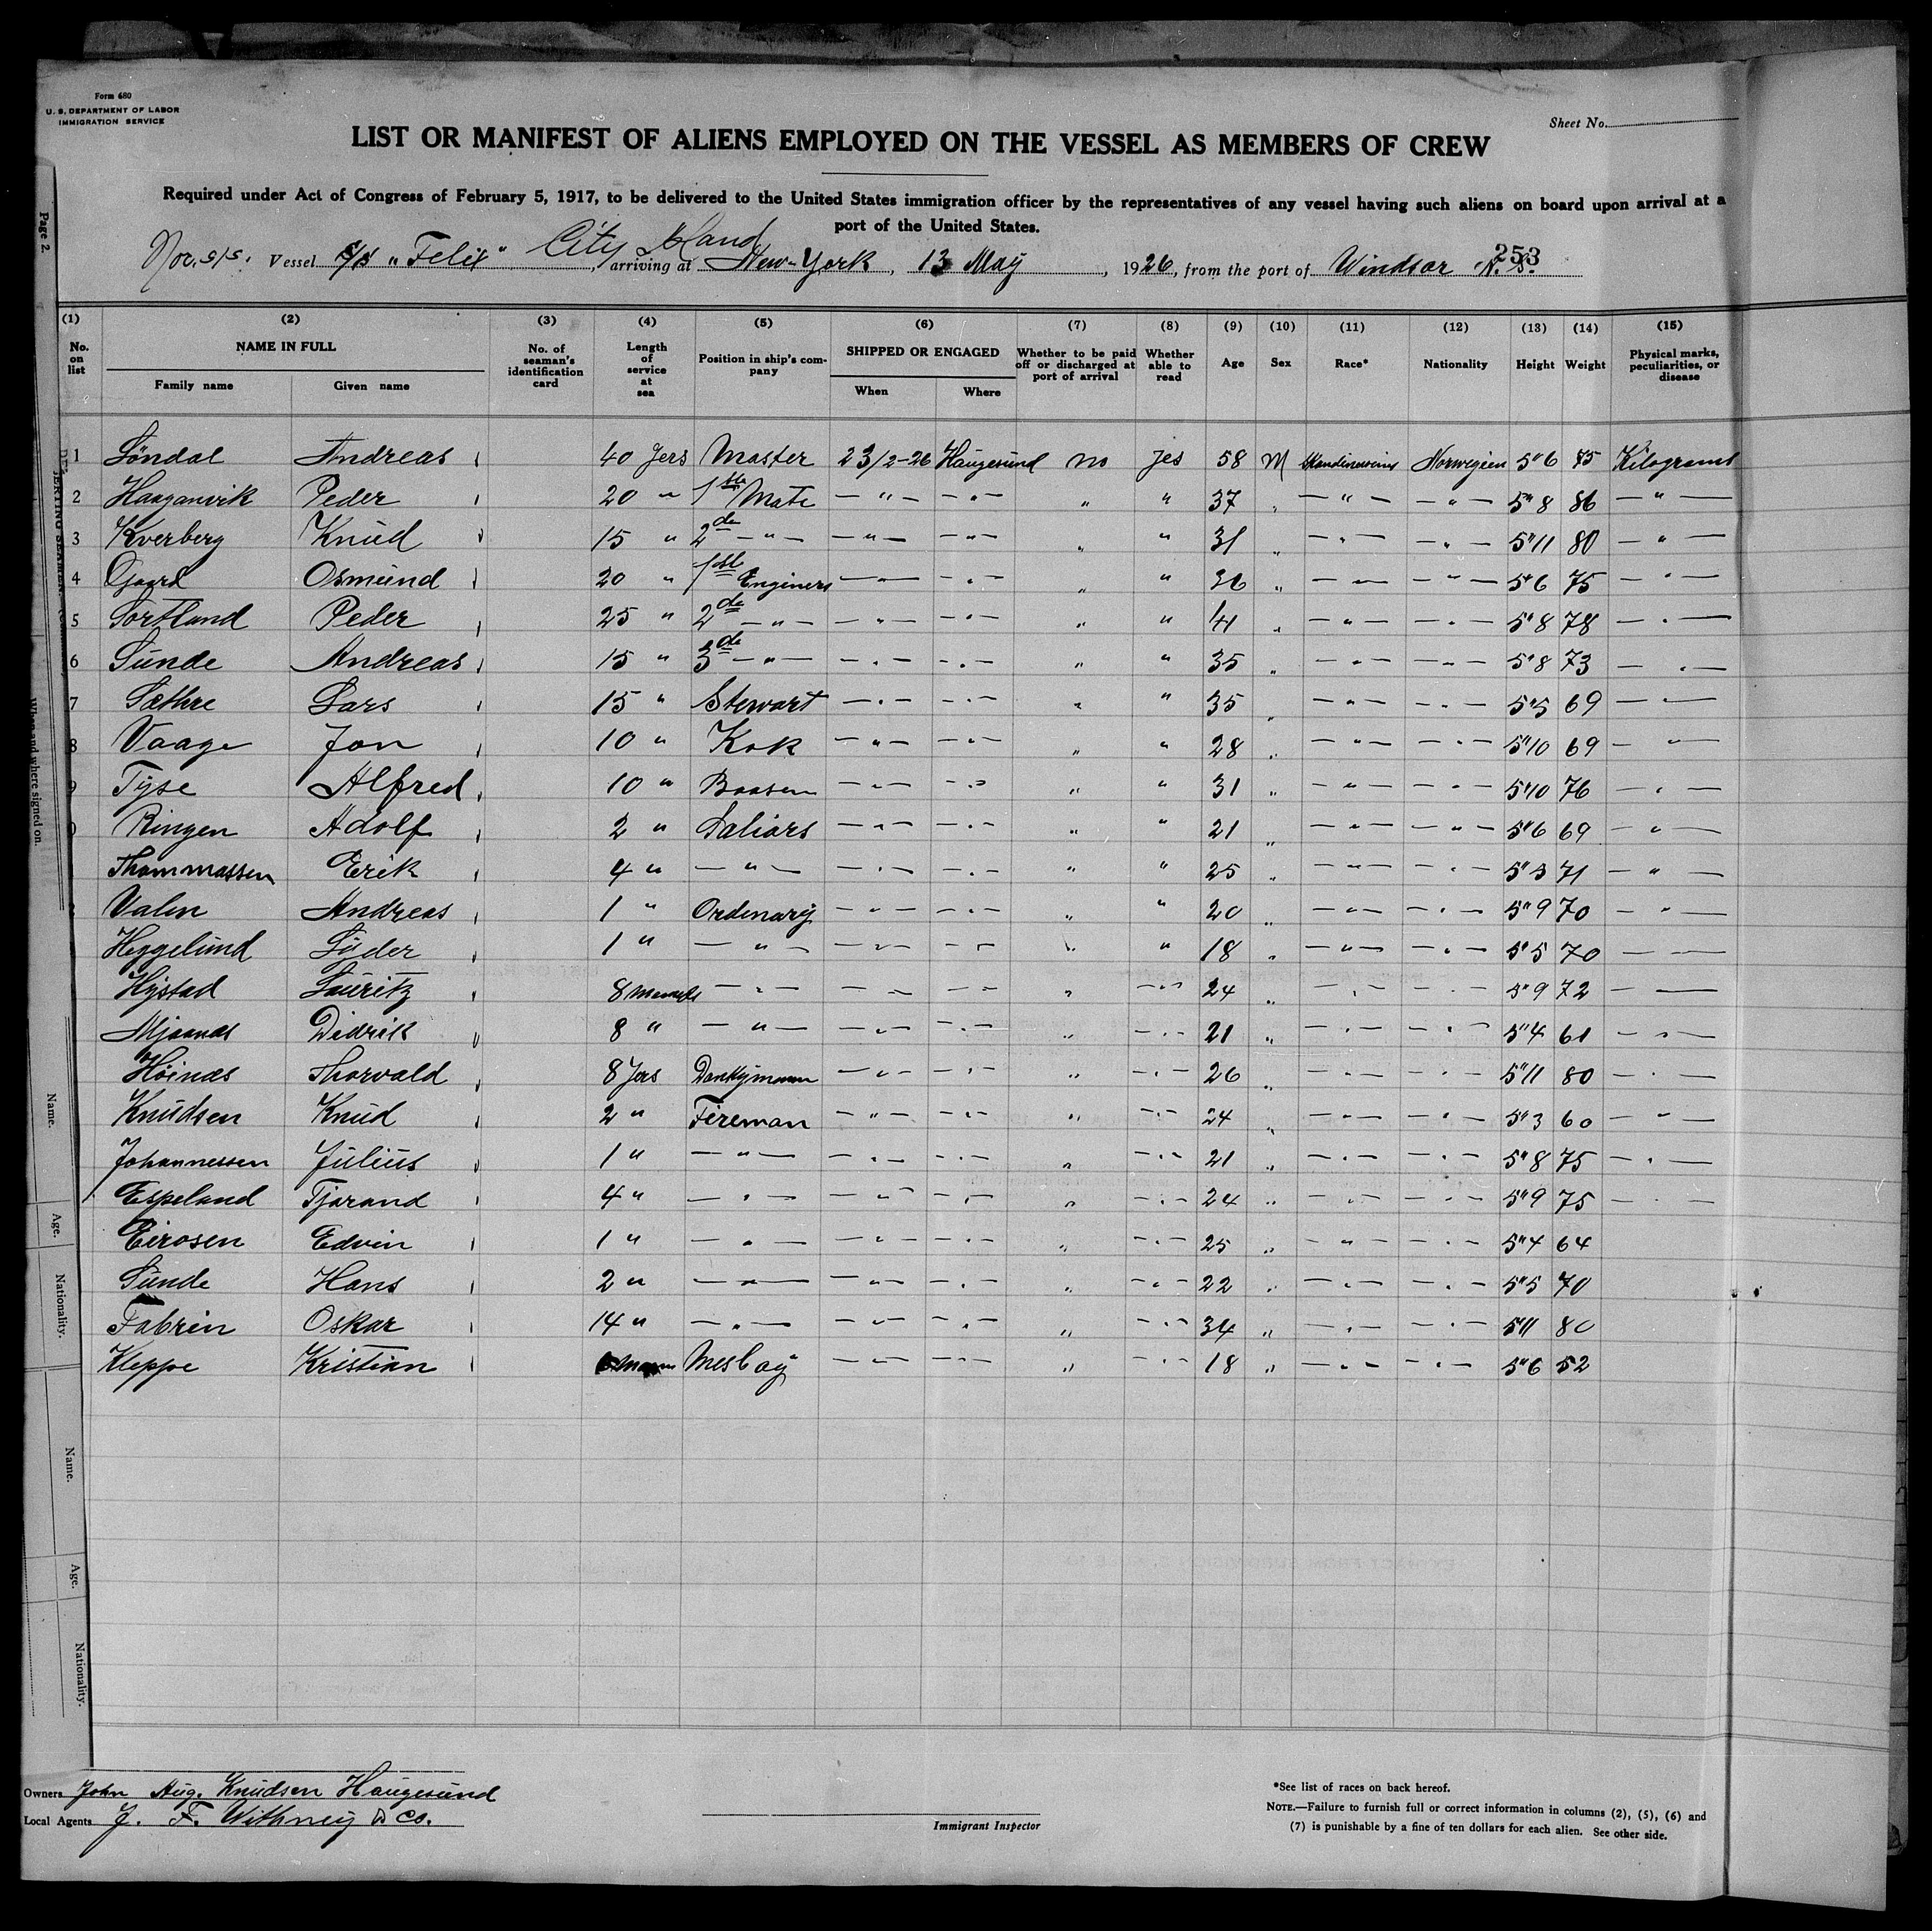 Form 680
U. S. DEPARTMENT OF LABOR
IMMIGRATION SERVICE
Sheet No.
LIST OR MANIFEST OF ALIENS EMPLOYED ON THE VESSEL AS MEMBERS OF CREW
Required under Act of Congress of February 5, 1917, to be delivered to the United States immigration officer by the representatives of any vessel having such aliens on board upon arrival at a
port of the United States.
City Island
253
Nor. s/s. Vessel s/s "Felix", arriving at New-York, 13 May, 1926, from the port of Windsor N. S.
(1) (2) (3) (4) (5) (6) (7) (8) (9) (10) (11) (12) (13) (14) (15)
No. on list NAME IN FULL Family name Given name No. of seaman's identification card Length of service at sea Position in ship's company SHIPPED OR ENGAGED When Where Whether to be paid off or discharged at port of arrival Whether able to read Age Sex Race* Nationality Height Weight Physical marks, peculiarities, or disease
1 Söndal Andreas 40 Jers Master 23/2-26 Haugesund no jes 58 M Skandinavins Norwegien 5"6 75 Kilograms
2 Haaganvik Peder 20 " 1ste Mate — " — — " — " " 37 " — " — — " — 5"8 86 — " —
3 Kverberg Knud 15 " 2de — " — — " — — " — " " 31 " — " — — " — 5"11 80 — " —
4 Gjaard Osmund 20 " 1ste Enginers — " — — " — " " 36 " — " — — " — 5"6 75 — " —
5 Sortland Peder 25 " 2de — " — — " — — " — " " 41 " — " — — " — 5"8 78 — " —
6 Sunde Andreas 15 " 3de — " — — " — — " — " " 35 " — " — — " — 5"8 73 — " —
7 Sæthre Lars 15 " Stewart — " — — " — " " 35 " — " — — " — 5"5 69 — " —
8 Vaage Jon 10 " Kok — " — — " — " " 28 " — " — — " — 5"10 69 — " —
9 Tyse Alfred 10 " Baasen — " — — " — " " 31 " — " — — " — 5"10 76 — " —
0 Ringen Adolf 2 " Saliors — " — — " — " " 21 " — " — — " — 5"6 69 — " —
Thommassen Erik 4 " — " — — " — — " — " " 25 " — " — — " — 5"3 71 — " —
Valen Andreas 1 " Ordenary — " — — " — " " 20 " — " — — " — 5"9 70 — " —
Heggelund Süder 1 " — " — — " — — " — " " 18 " — " — — " — 5"5 70 — —
Hystad Lauritz 8 — " — — " — — " — " — " — 24 " — " — — " — 5"9 72 — —
Mjaanes Didrik 8 " — " — — " — — " — " — " — 21 " — " — — " — 5"4 61 — " —
Höinæs Thorvald 8 Jers Donkymann — " — — " — " — " — 26 " — " — — " — 5"11 80 — " —
Knudsen Knud 2 " Fireman — " — — " — " — " — 24 " — " — — " — 5"3 60 — " —
Johannessen Julius 1 " — " — — " — — " — " — " — 21 " — " — — " — 5"8 75 — " —
Espeland Tjorand 4 " — " — — " — — " — " — " — 24 " — " — — " — 5"9 75 — " —
Eirosen Edvin 1 " — " — — " — — " — " — " — 25 " — " — — " — 5"4 64
Sunde Hans 2 " — " — — " — — " — " — " — 22 " — " — — " — 5"5 70
Fabrin Oskar 14 " — " — — " — — " — " — " — 34 " — " — — " — 5"11 80
Kleppe Kristian Mesboy — " — — " — " — " — 18 " — " — — " — 5"6 52
Owners John Aug. Knudsen Haugesund
Local Agents J. F. Withney & Co.
Immigrant Inspector
*See list of races on back hereof.
NOTE.—Failure to furnish full or correct information in columns (2), (5), (6) and
(7) is punishable by a fine of ten dollars for each alien. See other side.
Page 2.
When and where signed on.
Name.
Age.
Nationality.
Name.
Age.
Nationality.